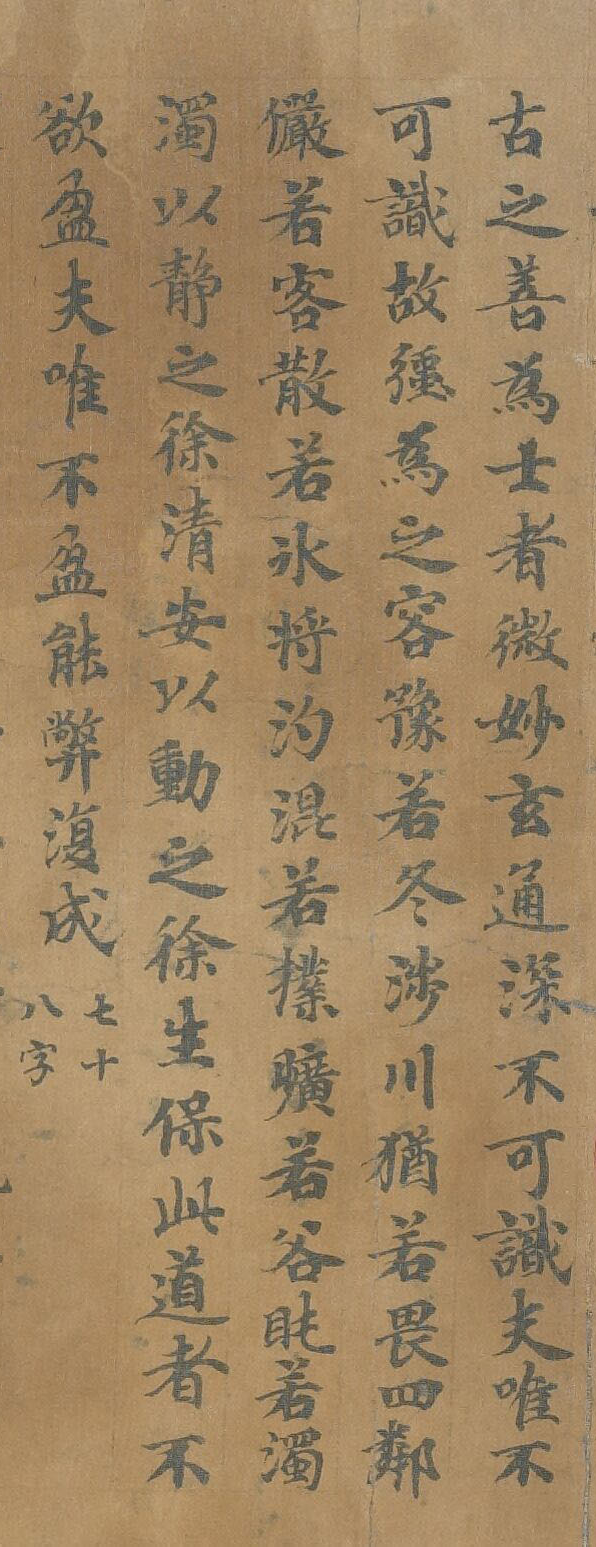 古之善為士者微妙玄通深不可識夫唯不
可識故彊為之容豫若冬涉川猶若畏四鄰
儼若客散若冰將汋混若樸曠若谷眊若濁
濁以静之徐清安以動之徐生保此道者不
欲盈夫唯不盈能弊復成
七十
八字